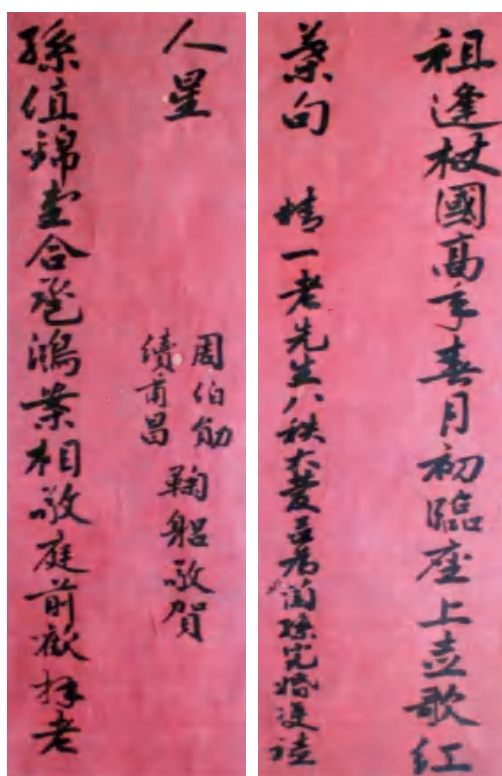 祖逢杖國高年春月初臨座上歌紅
葉句
精一老先生八秩大慶為孫完婚
人星
周伯勛
鞠躬敬賀
孫值錦堂合卺鴻案相敬庭前歡拜老